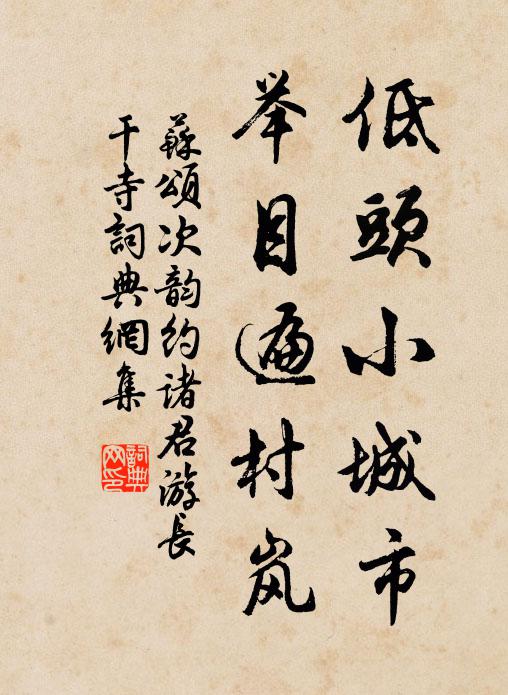 低頭小城市
举目遍村岚
蘇頌次韵约诸君游長
干寺詞典網集
詞典
网印